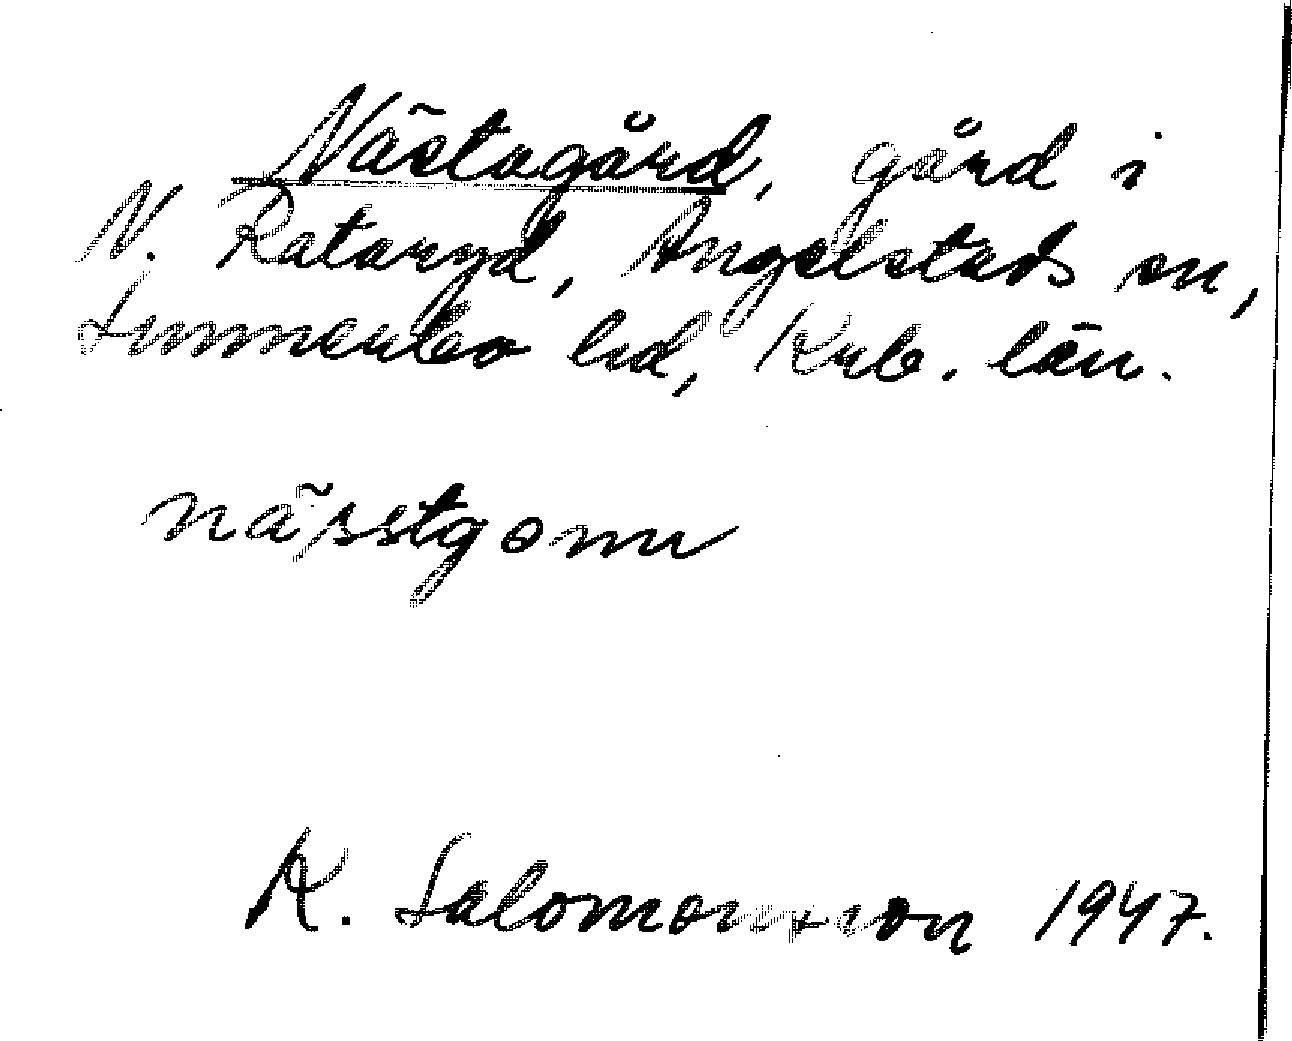 Nästagård, gård i
N. Rataryd, Angelstads sn,
Sunnerbo hd, Krb. län.
nässtgonu
K. Salomonsson 1947.